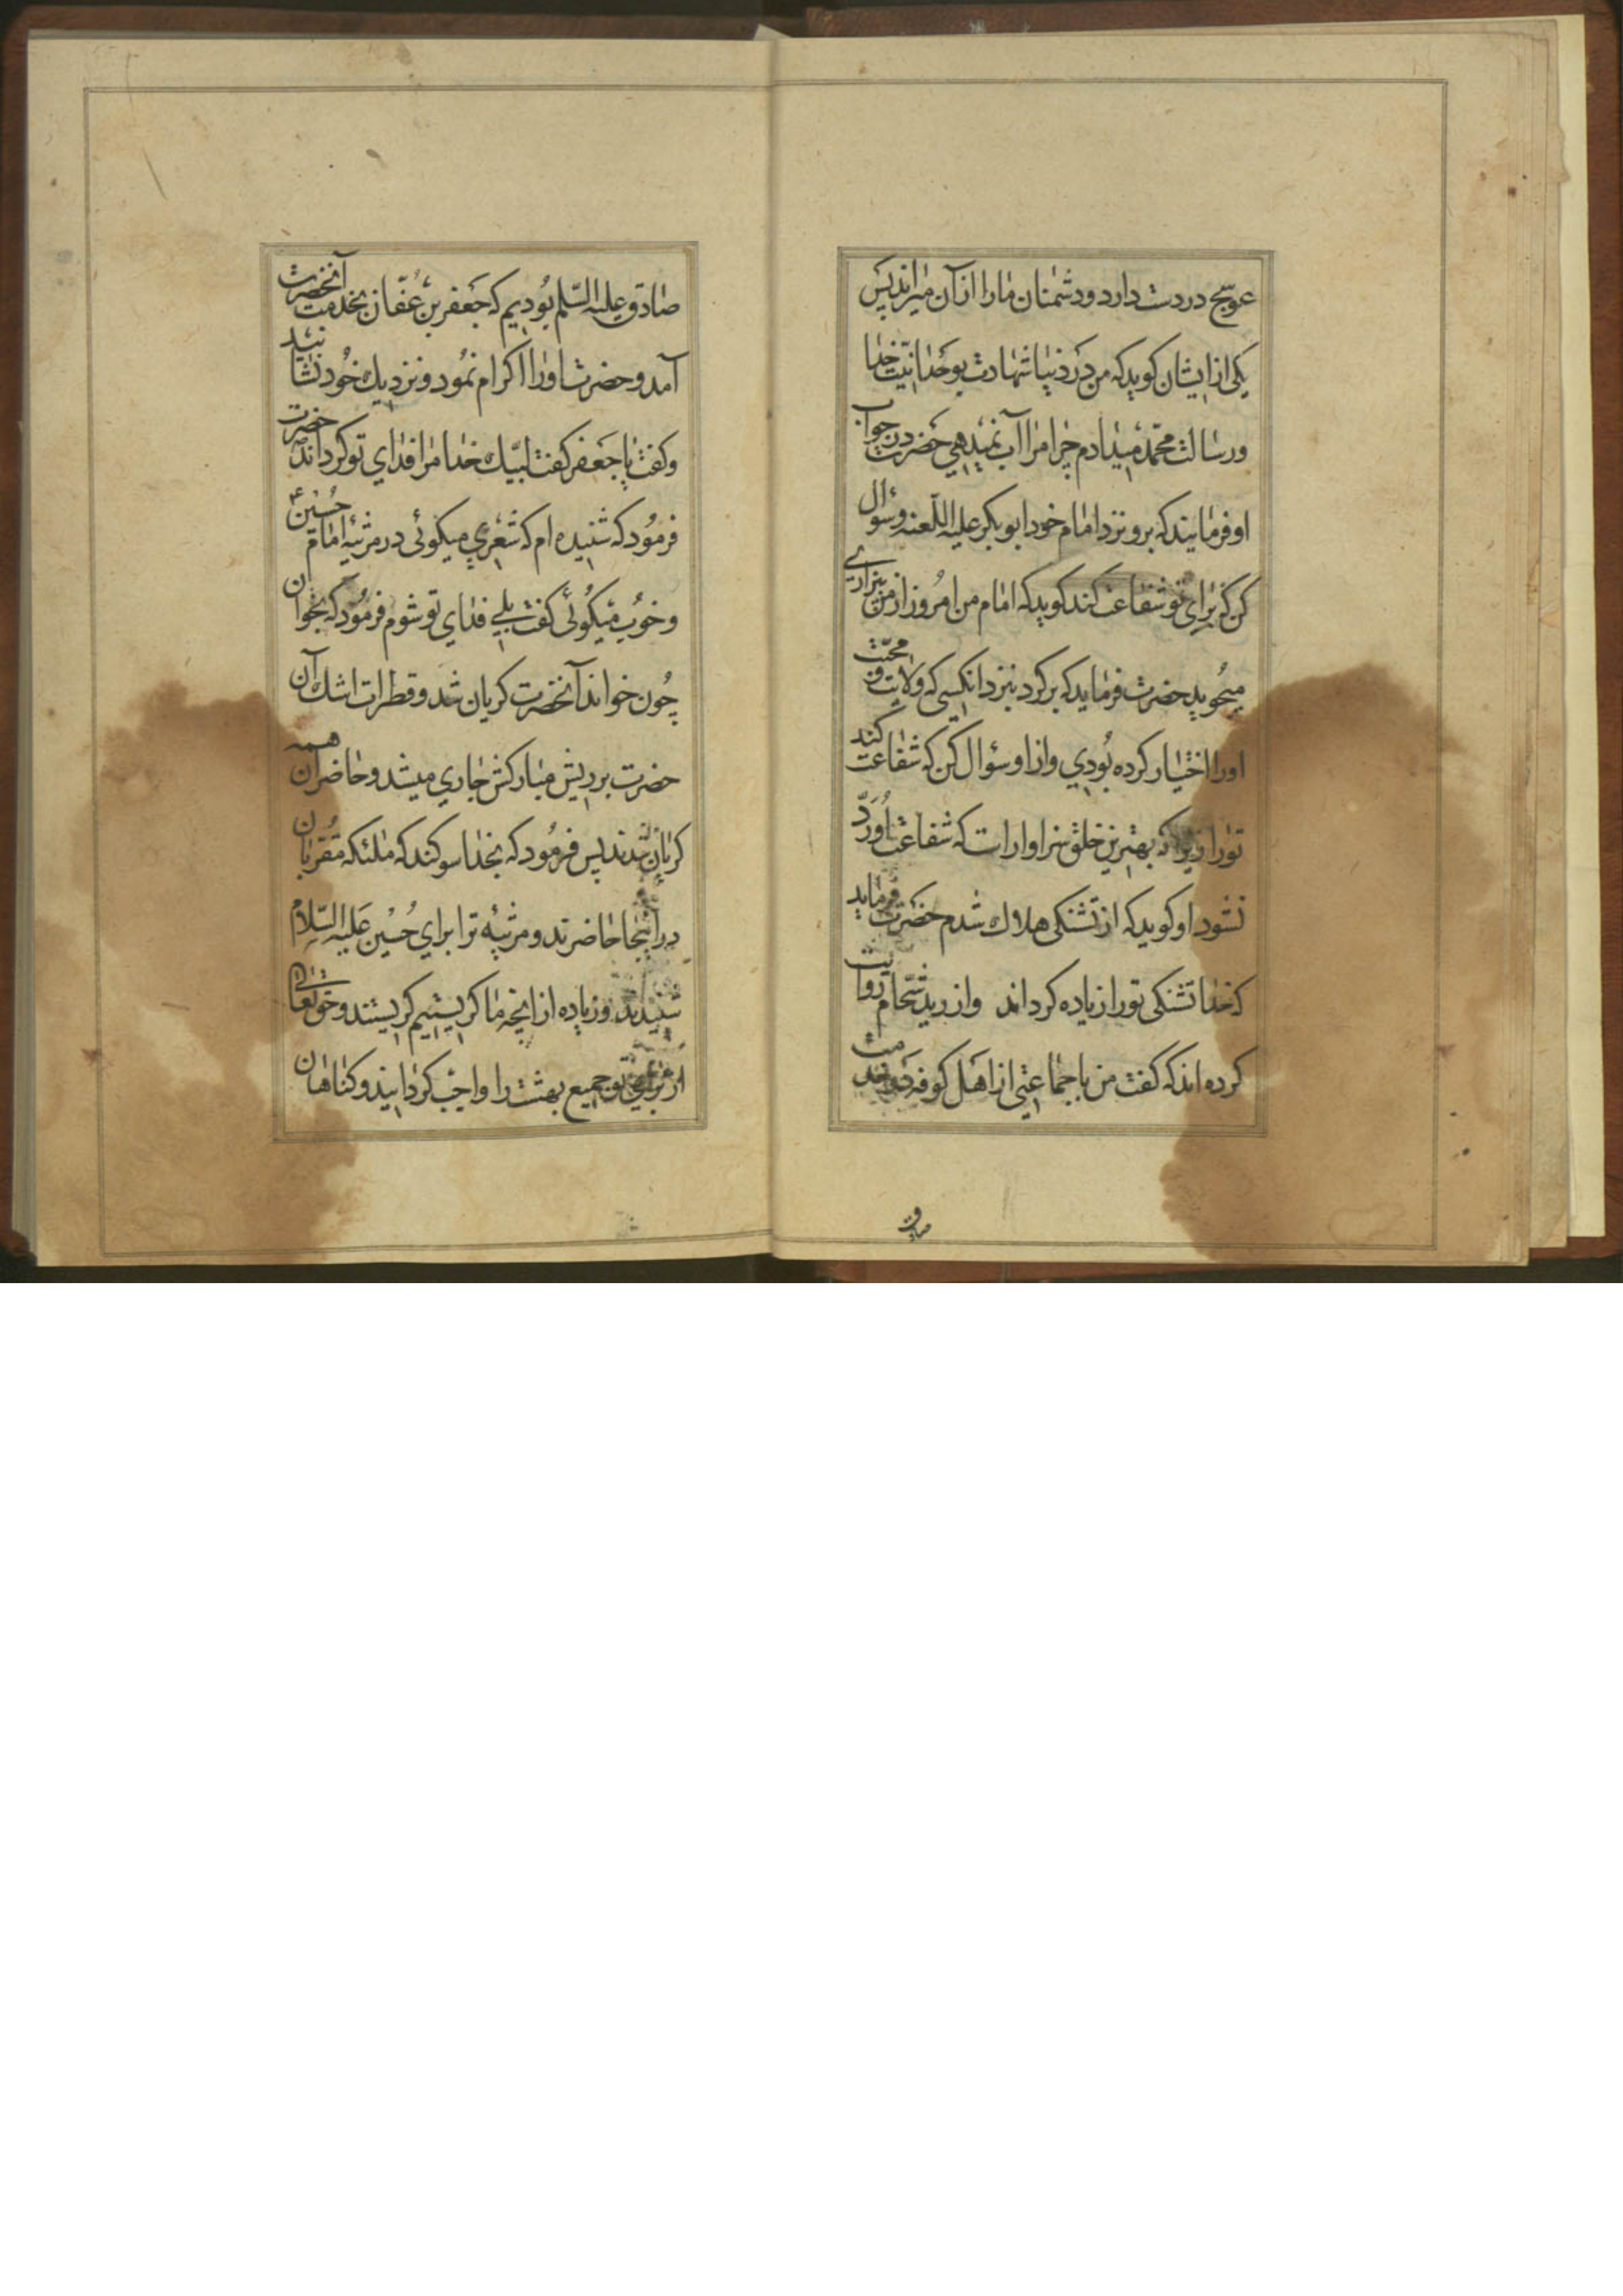 عوسج در دست دارد و دشمنان ما را از آن میراند پس
یکی از ایشان کوید که من در دنیا شهادت بوحدانیّت خدا
و رسالت محمّد میدادم چرا مرا آب نمیدهی حضرت در جواب
او فرمایند که برو نزد امام خود ابو بکر علیه اللّعنه و سؤال
کن که برای تو شفاعت کند کوید که امام من امروز از من بیزاری
میجوید حضرت فرماید که برکرد بنزد انکسی که ولایت و محبّت
او را اختیار کرده بودی و از او سؤال کن که شفاعت کند
تو را زیرا که بهترین خلق سزاوار است که شفاعت او ردّ
نشود او کوید که از تشنکی هلاك شدم حضرت فرماید
که خدا تشنکی تو را زیاده کرداند و از زید شحّام روایت
کرده اند که کفت من با جماعتی از اهل کوفه در خدمت
صادق
صادق علیه السّلم بودیم که جعفر بن عفّان بخدمت آنحضرت
آمد و حضرت او را اکرام نمود و نزدیك خود نشانید
و کفت یا جعفر کفت لبّیك خدا مرا فدای تو کرداند حضرت
فرمود که شنیده ام که شعری میکوئی در مرثیه امام حسین ع
و خوب میکوئی کفت بلی فدای تو شوم فرمود که بخوان
چون خواند آنحضرت کریان شد و قطرات اشك آن
حضرت بر ریش مبارکش جاری میشد و حاضران همه
کریان شدند پس فرمود که بخدا سوکند که ملئکه مقربان
در اینجا حاضرند و مرثیه ترا برای حسین علیه السّلام
شنیدند و زیاده از انچه ما کریستیم کریستند و حق تعالی
از برای تو جمیع بهشت را واجب کردانید و کناهان